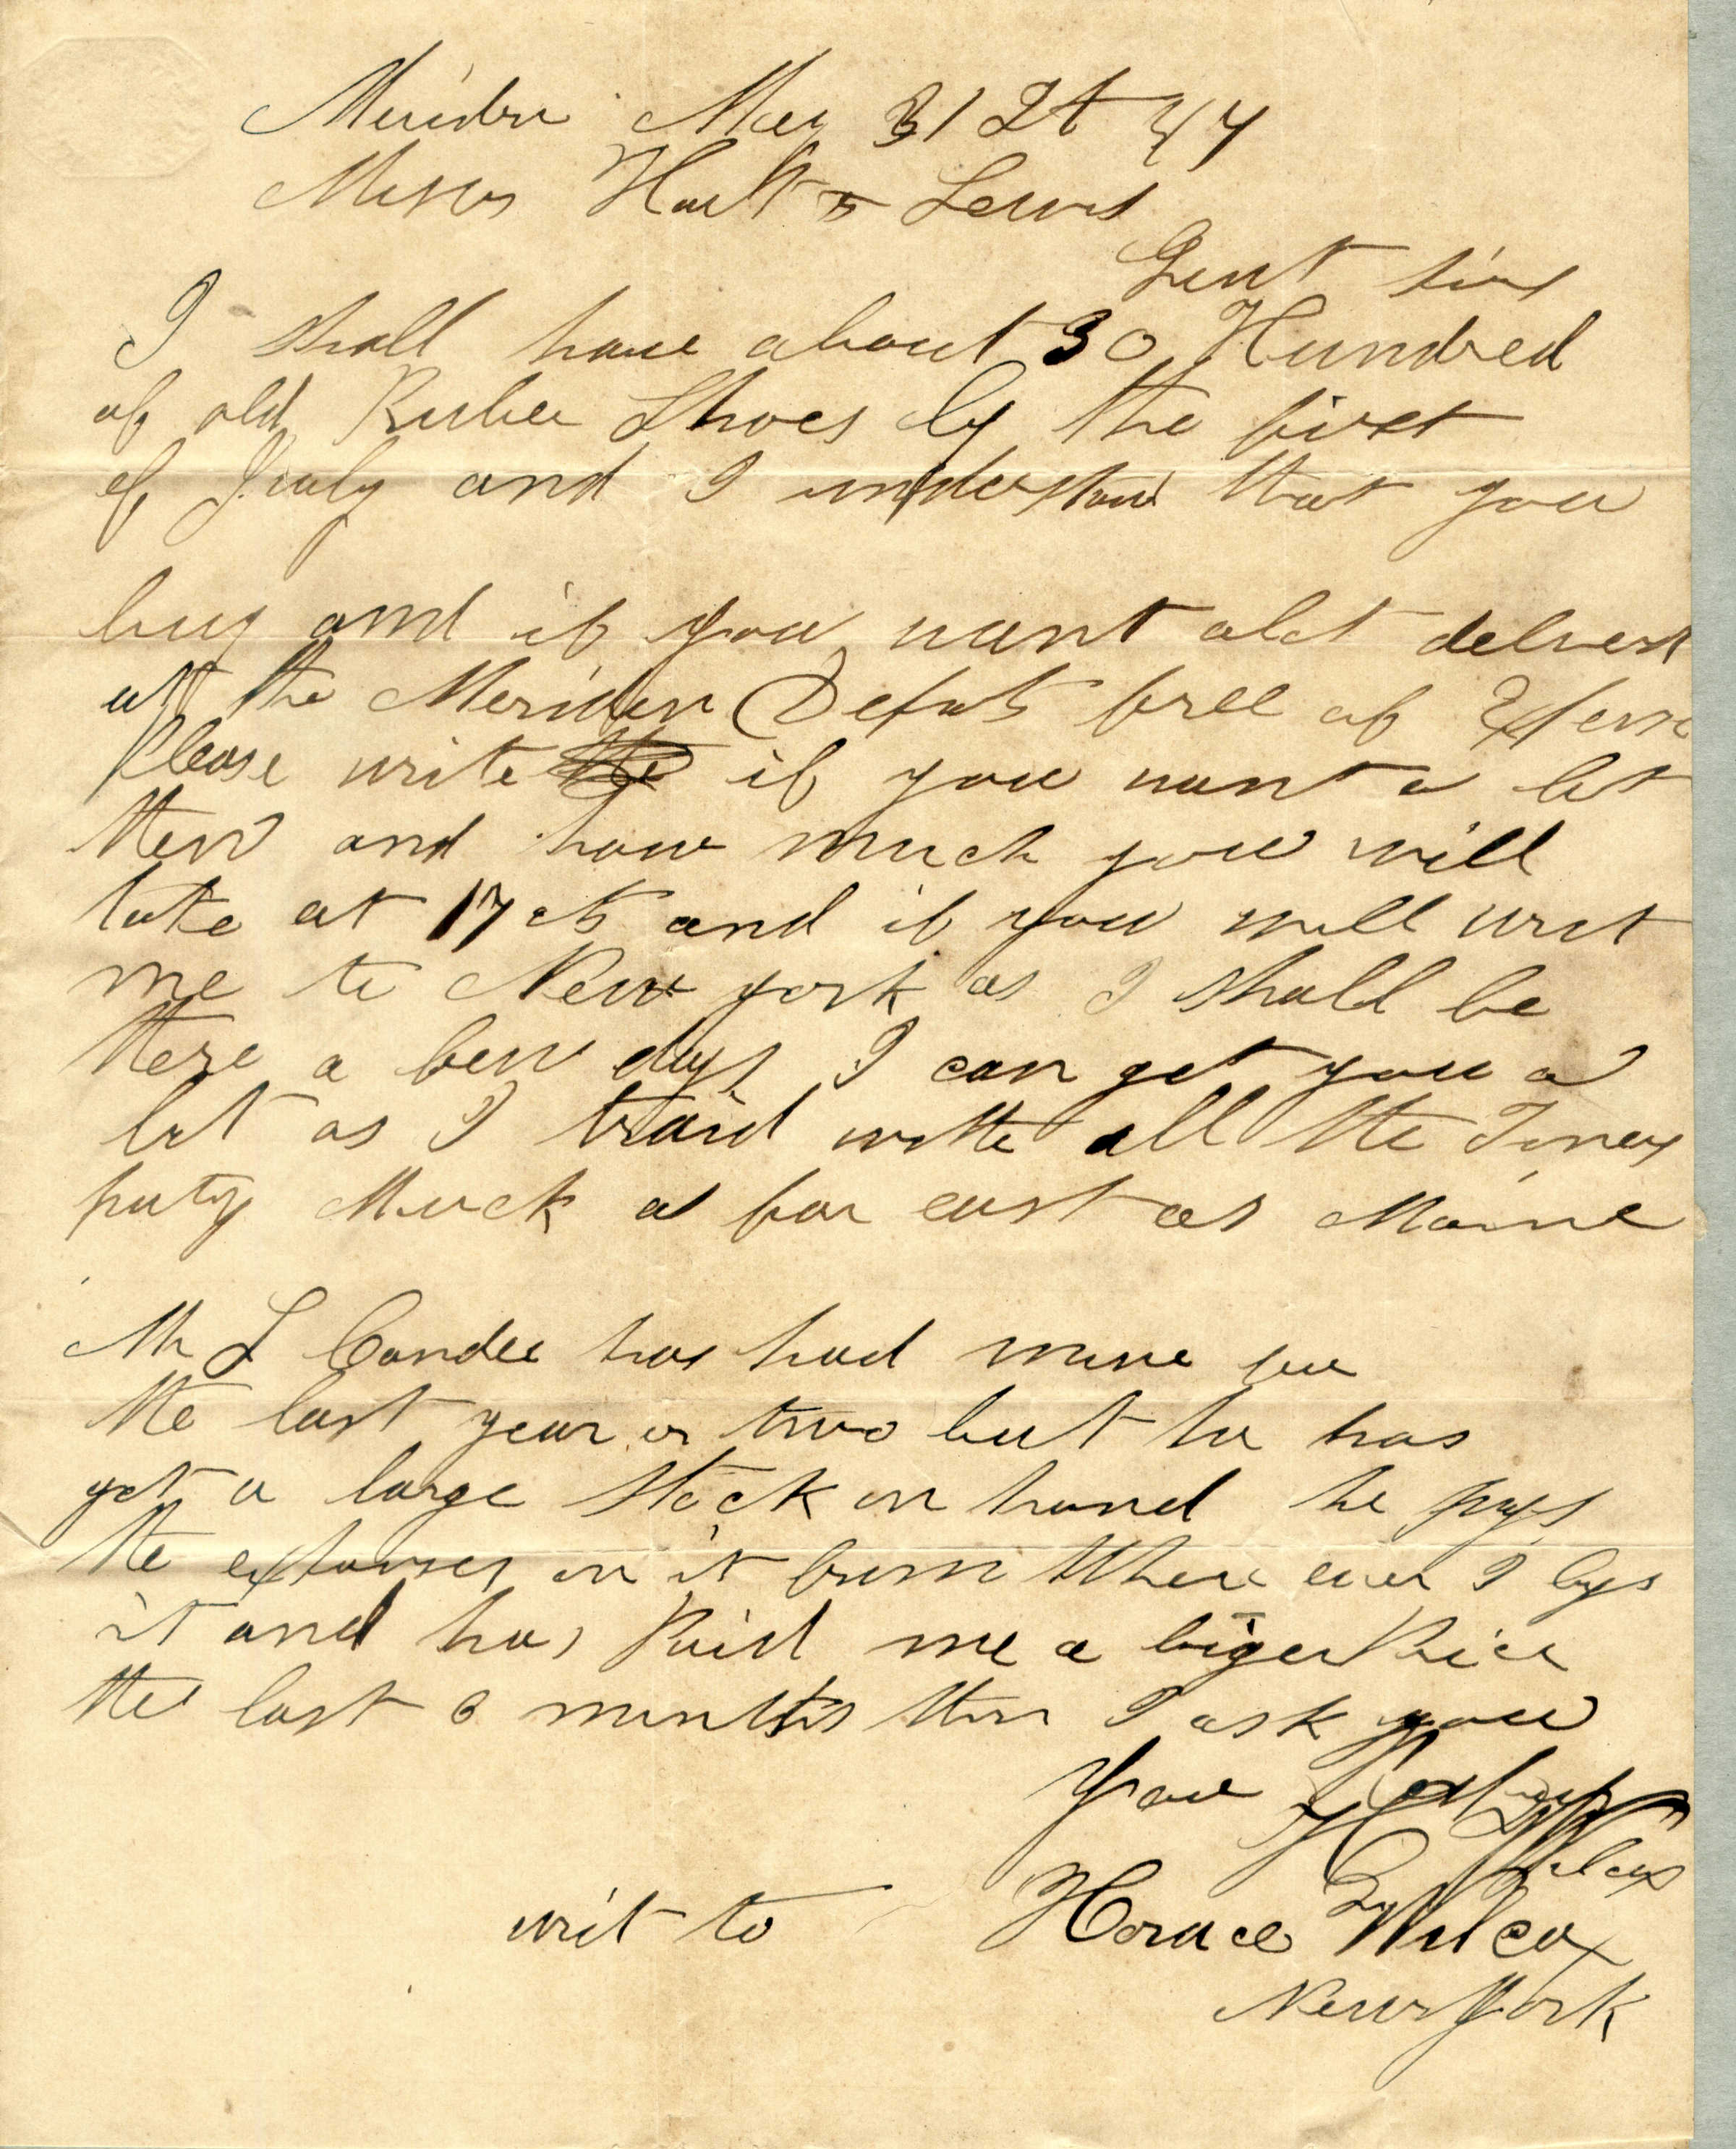 Meriden May 31 St 47
Messrs Hart & Lewis
Gent
I Shall have about 30 Hundred
of old Ruber Shoes by the first
of July and I understand that you
buy and if you want
at the Meriden Depot free of
Please write if you want a lot
then and how much you will
take at 17 cts and if you will writ
me to New york as I shall be
there a few days I can get you a
lot as I traid withe all the
prity Much as far east as Maine
Mr L Candee has had mine for
the last year or two but he has
got a large Stock on hand he pays
the on it from Where ever I
it and has Paid me a biger Price
the last 6 months then I ask you
Horace Wilcox
writ to
New York